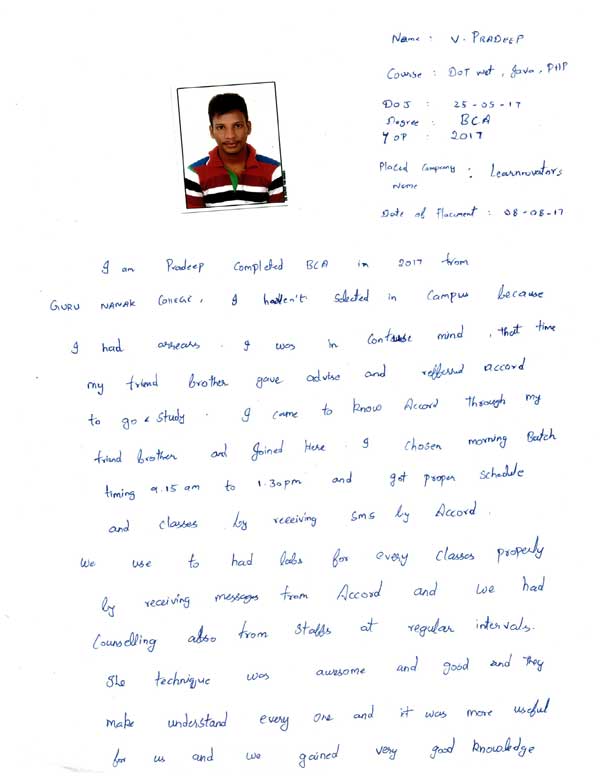 Name : V. PRADEEP
Course : DOT net, Java, PHP
DOJ : 25-05-17
Degree : BCA
YOP : 2017
Placed Company Name : Learnnovators
Date of Placement : 08-08-17
I am Pradeep Completed BCA in 2017 from
GURU NANAK COllEGE, I hadven't Selected in Campus because
I had arrears. I was in Confuse mind, that time
my friend brother gave advise and reffered accord
to go & study. I came to know Accord Through my
friend brother and Joined Here. I chosen morning Batch
timing 9.15 am to 1.30pm and got proper Schedule
and classes by receiving sms by Accord.
We use to had labs for every classes properly
by receiving messages from Accord and we had
Counselling also from Staffs at regular intervals.
The technique was awesome and good and They
make understand every one and it was more useful
for us and we gained very good knowledge